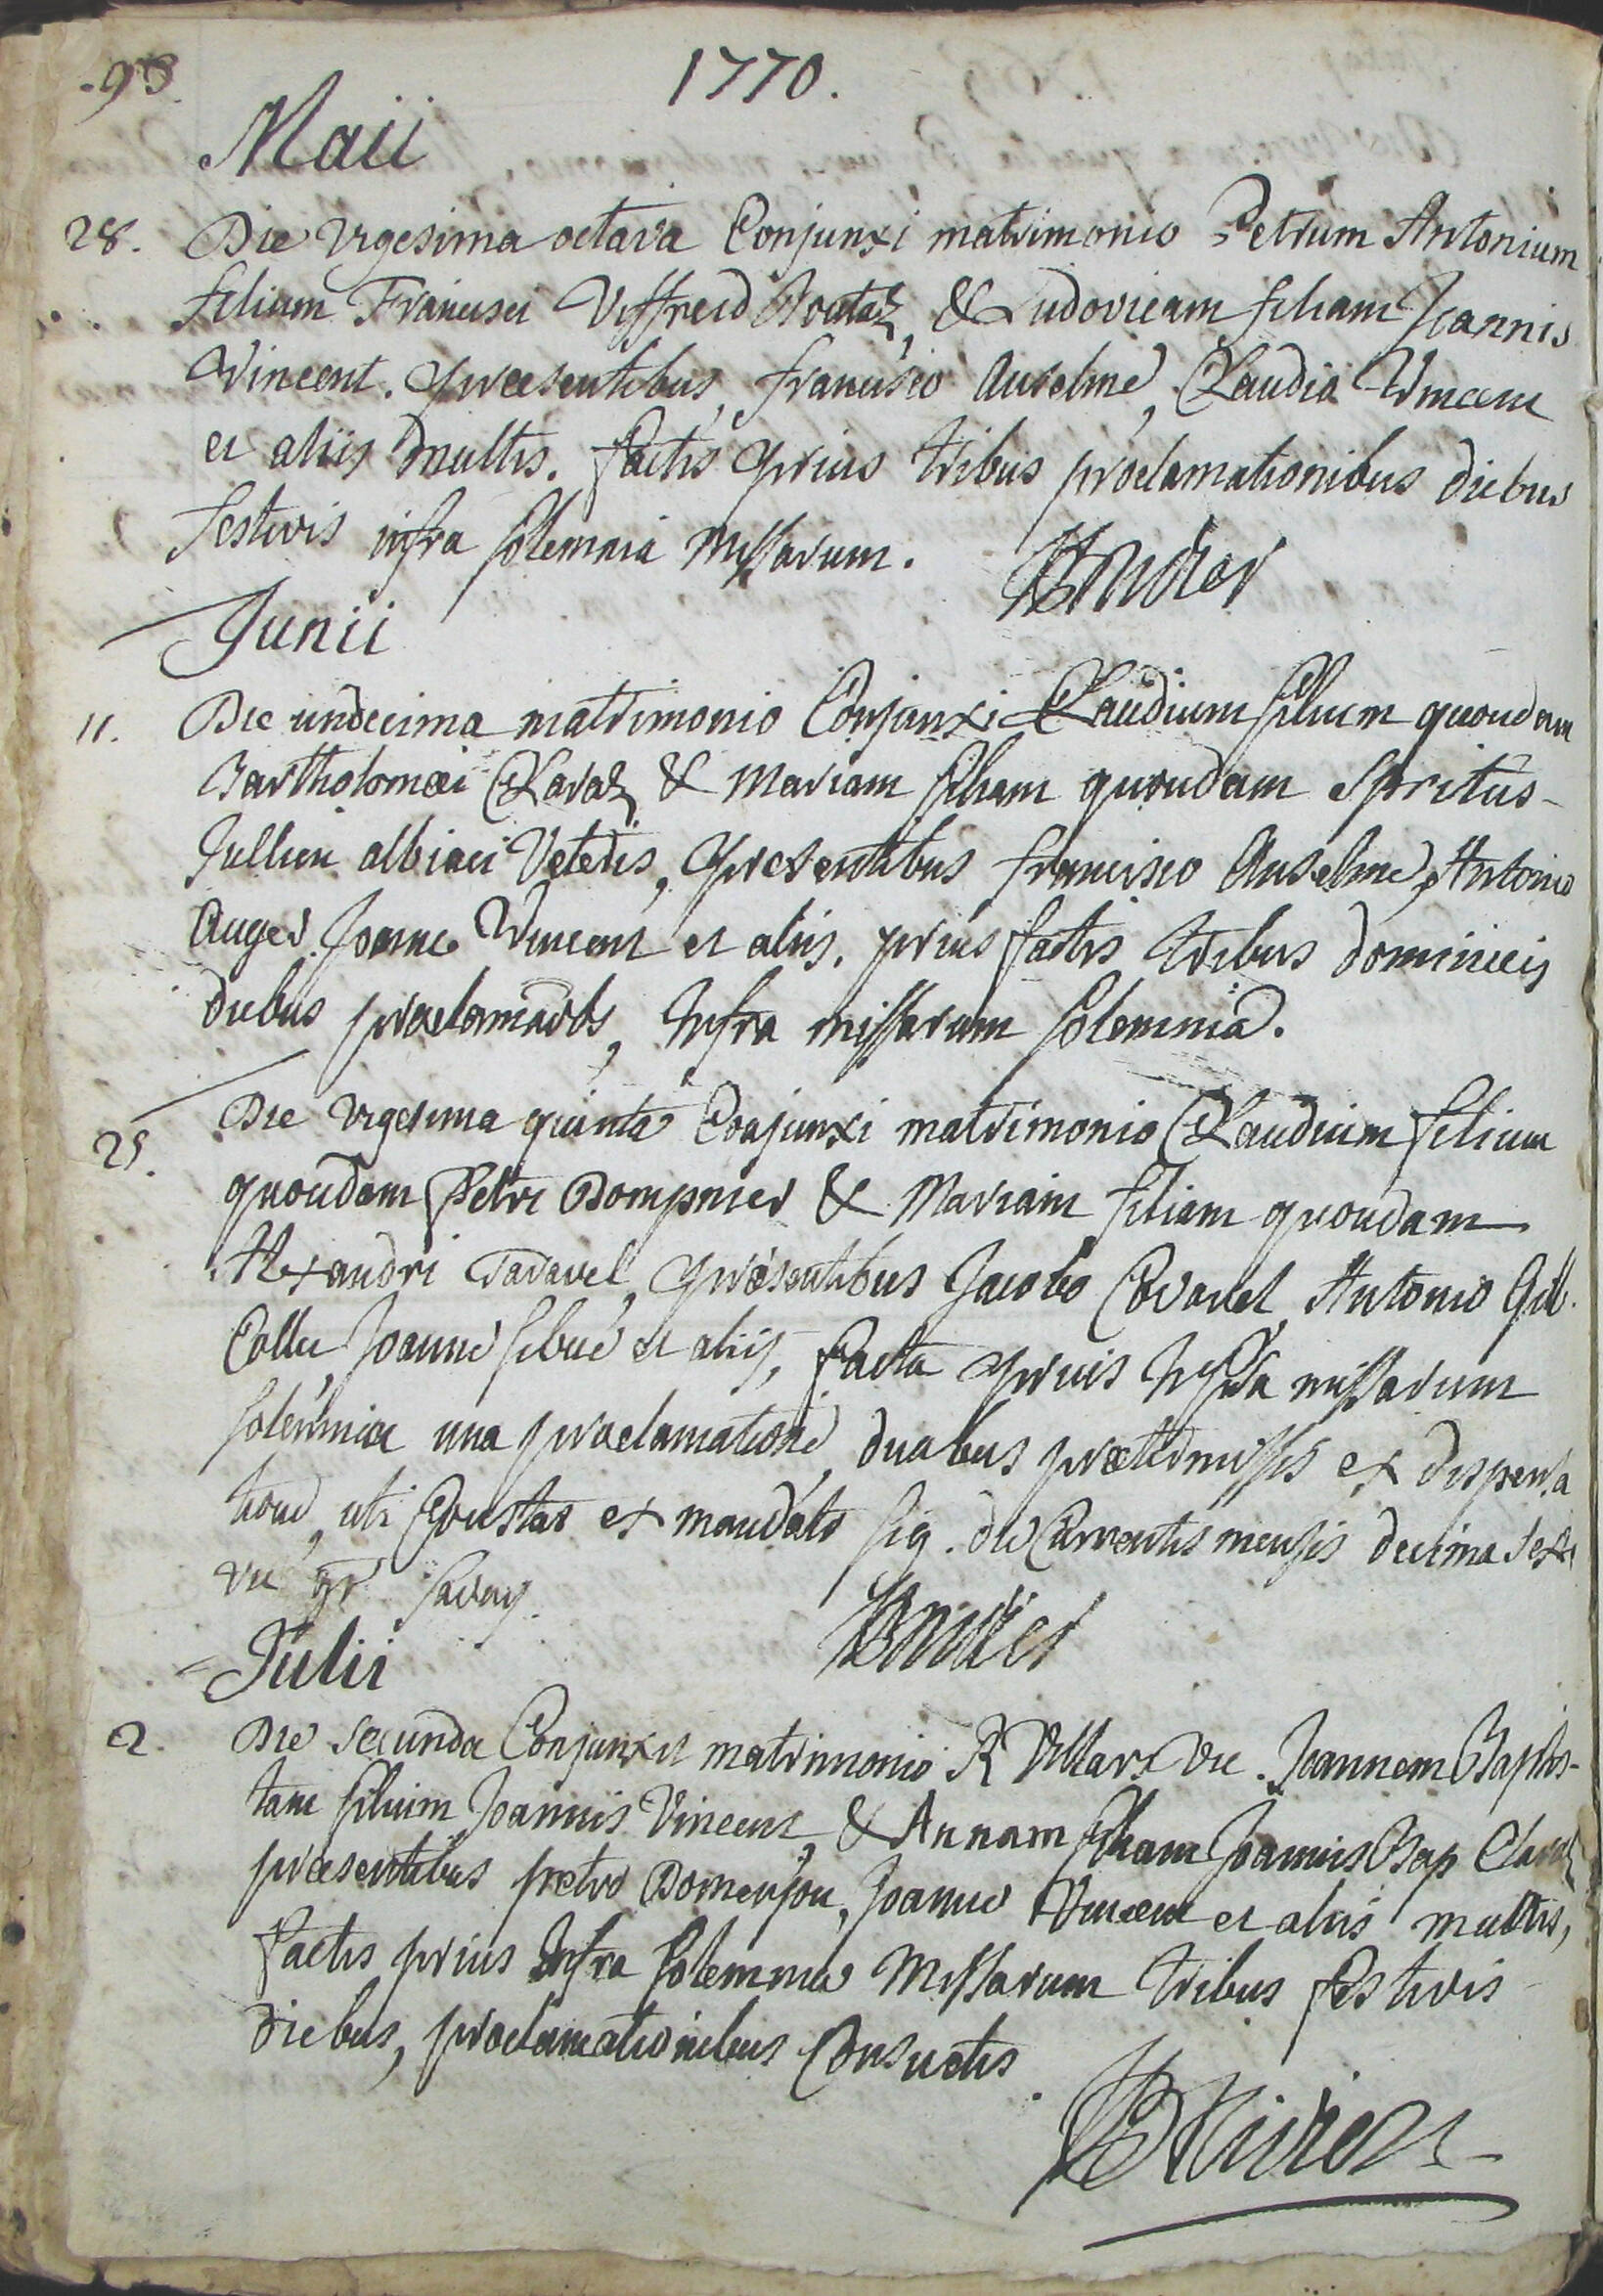 93
1770.
Maii
28. Die vigesima octava Conjunxi matrimonio Petrum Antonium
filium Francisci Viffreid & Ludovicam filiam Joannis
Vincent. præsentibus, francisco Anselme, Claudia Vincent
et aliis multis. factis prius tribus proclamationibus diebus
festivis infra solemnia missarum.
Junii
11. Die undecima matrimonio Conjunxi Claudium filium quondam
Bartholomæi Claraz & Mariam filiam quondam Spiritus-
Jullien albiaci Veteris, præsentibus francisco Anselme, Antonio
Auger Joanne Vincent et aliis. prius factis tribus dominicis
diebus proclamaōbs, Infra missarum solemnia.
25. Die vigesima quinta Conjunxi matrimonio Claudium filium
quondam Petri Dompnier & Mariam filiam quondam
Alexandri Taravel, præsentibus Jacobo Covarel, Antonio Gil.
Collet, Joanne sibué et aliis, facta prius Infra missarum
solemnia una proclamatione, duabus prætermissis ex dispensa
tione, uti Constat ex mandato sig. die Currentis mensis decima sexta
vic gr Savoy.
Julii
2. Die secunda Conjunxit matrimonio R Villars vic. Joannem Baptis-
tam filium Joannis Vincent, & Annam filiam Joannis Bap Claraz
præsentibus petro Domenjon, Joanne Vincent et aliis multis,
factis prius Infra solemnia Missarum tribus festivis
diebus, proclamationibus Consuetis.